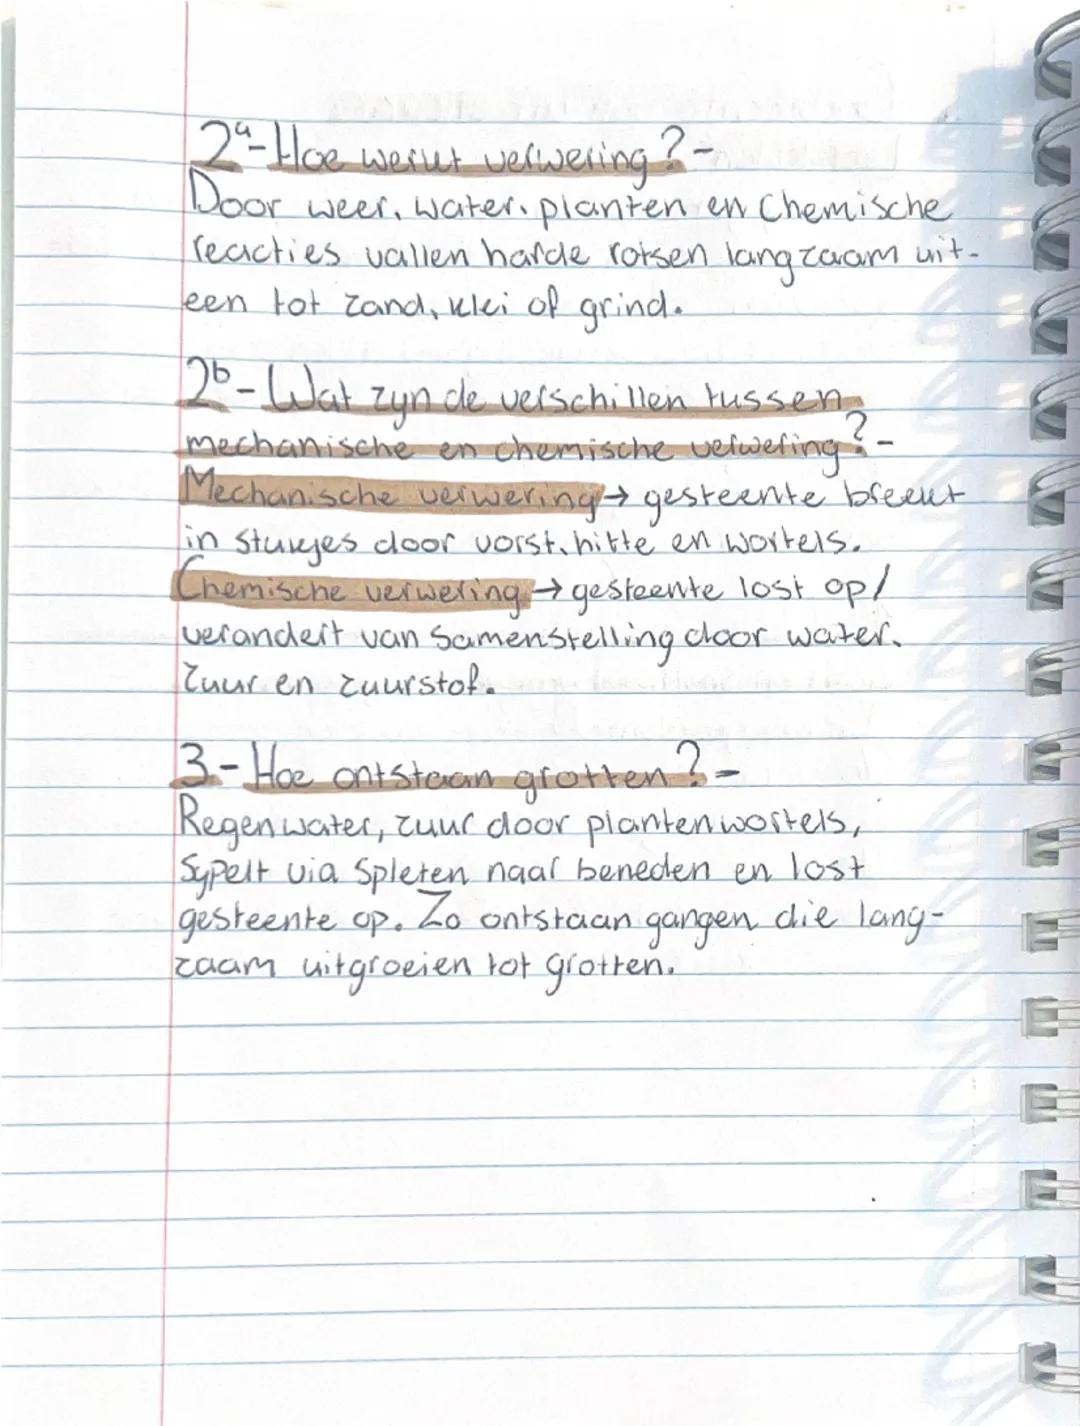 2a - Hoe werkt verwering? -
Door weer, water, planten en chemische
reacties vallen harde rotsen langzaam uit-
een tot zand, klei of grind.
2b - Wat zyn de verschillen tussen
mechanische en chemische verwering? -
Mechanische verwering → gesteente breekt
in stukjes door vorst, hitte en wortels.
Chemische verwering → gesteente lost op/
verandert van samenstelling door water,
zuur en zuurstof.
3 - Hoe ontstaan grotten? -
Regenwater, zuur door plantenwortels,
sypelt via spleten naar beneden en lost
gesteente op. Zo ontstaan gangen die lang-
zaam uitgroeien tot grotten.